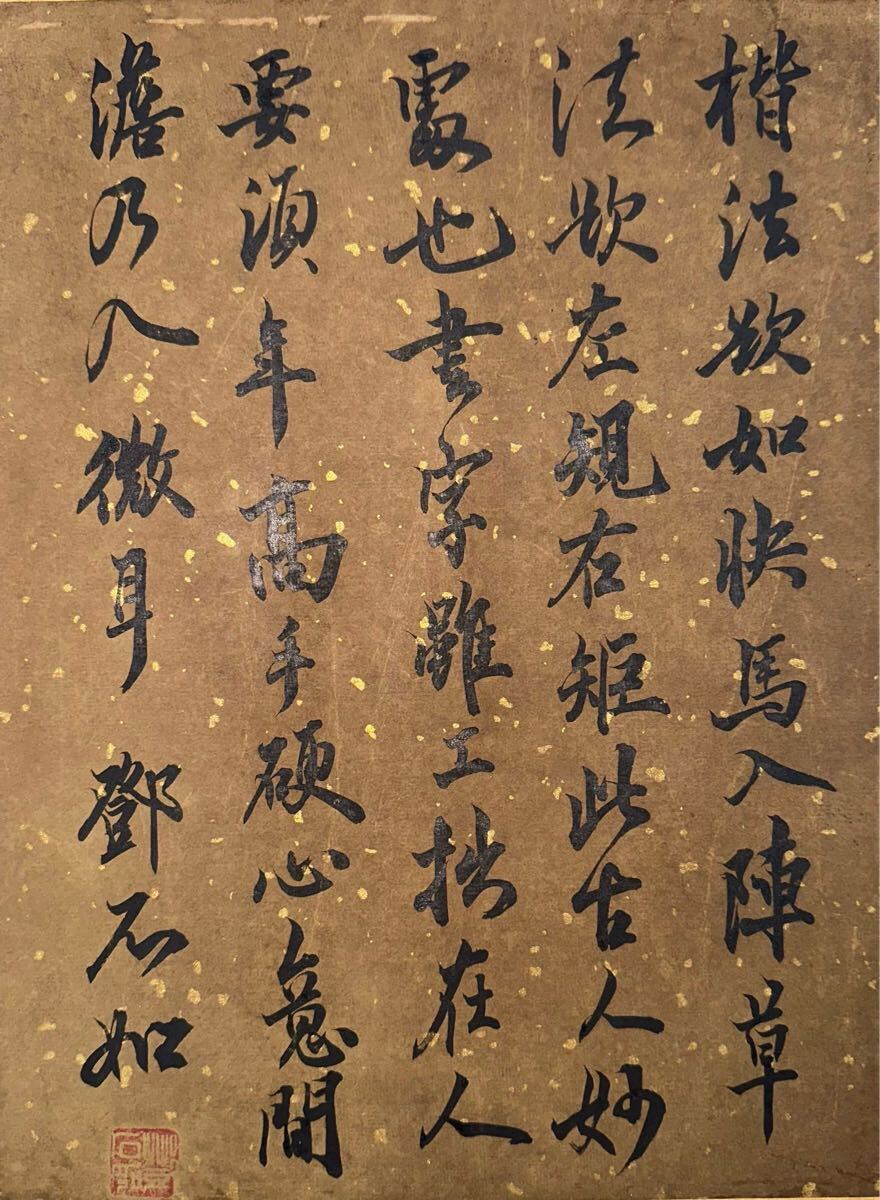 楷法欲如快馬入陣草
法欲左規右矩此古人妙
處也書字雖工拙在人
要須年高手硬心意閒
澹乃入微耳 鄧石如